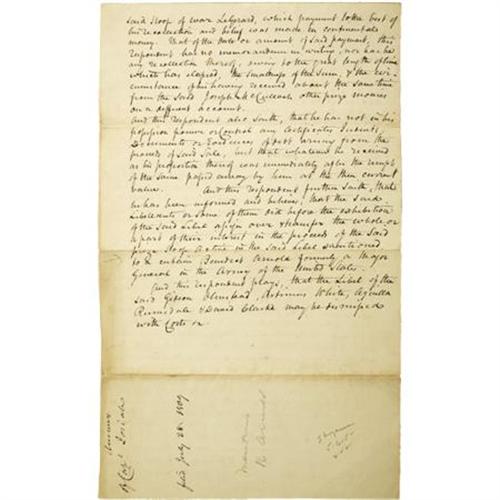 said Sloop of war Le Gerard, which payment to the best of
his recollection and belief was made in continental
money. That of the date or amount of said payment, this
respondent has no memorandum in writing, nor has he
any recollection thereof, owing to the great length of time
which has elapsed, the smallness of the Sum, & the cir-
cumstance of his having received about the same time
from the said Joseph McCulleah other prize monies
on a different account.
And this Respondent also saith, that he has not in his
possession power or Control any Certificates
Documents or Evidences of debt arising from the
proceeds of said Sale, but that whatever he received
as his proportion thereof was immediately after the receipt
of the same passed away by him at the then current
value. And this respondent further saith, that
he has been informed and believes, that the said
Libellants or some of them did before the exhibition
of the said Libel assign over & transfer the whole or
a part of their interest in the proceeds of the said
prize Sloop Active in the said Libel mentioned
to a certain Benedict Arnold formerly a Major
General in the Army of the United States.
And this respondent prays, that the Libel of the
said Gideon Olmstead, Artimus White, Aquilla
Rumsdale & David Clark may be dismissed
with Costs &c.
Answer
of Capt Josiah
filed July 28 1809